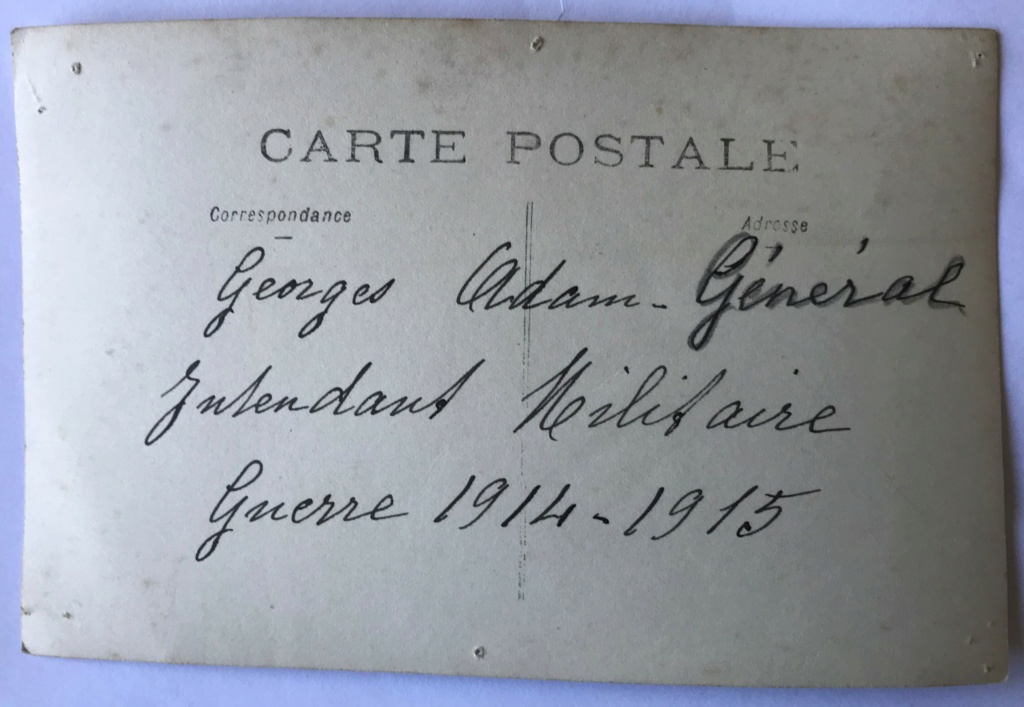 CARTE POSTALE
Correspondance
Adresse
Georges Adam - Général
Intendant Militaire
Guerre 1914-1915